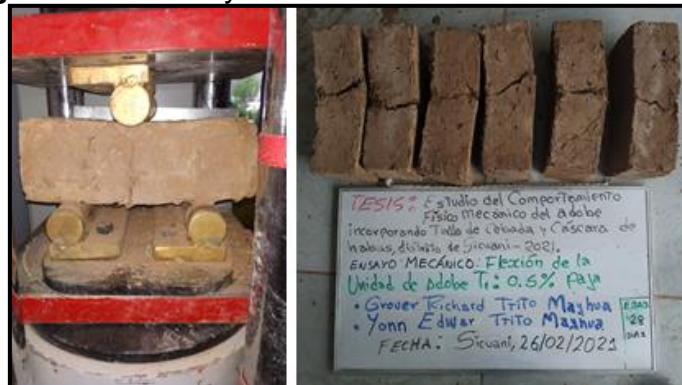 TESIS: Estudio del Comportamiento
Físico Mecánico del adobe
incorporando Tallo de cebada y Cáscara de
habas, distrito de Sicuani-2021.
ENSAYO MECÁNICO: Flexión de la
Unidad de adobe T1: 0.5% Paja
• Grover Richard Trito Mayhua
• Yonn Edwar Trito Mayhua
EDAD
28
DIAS
FECHA: Sicuani, 26/02/2021